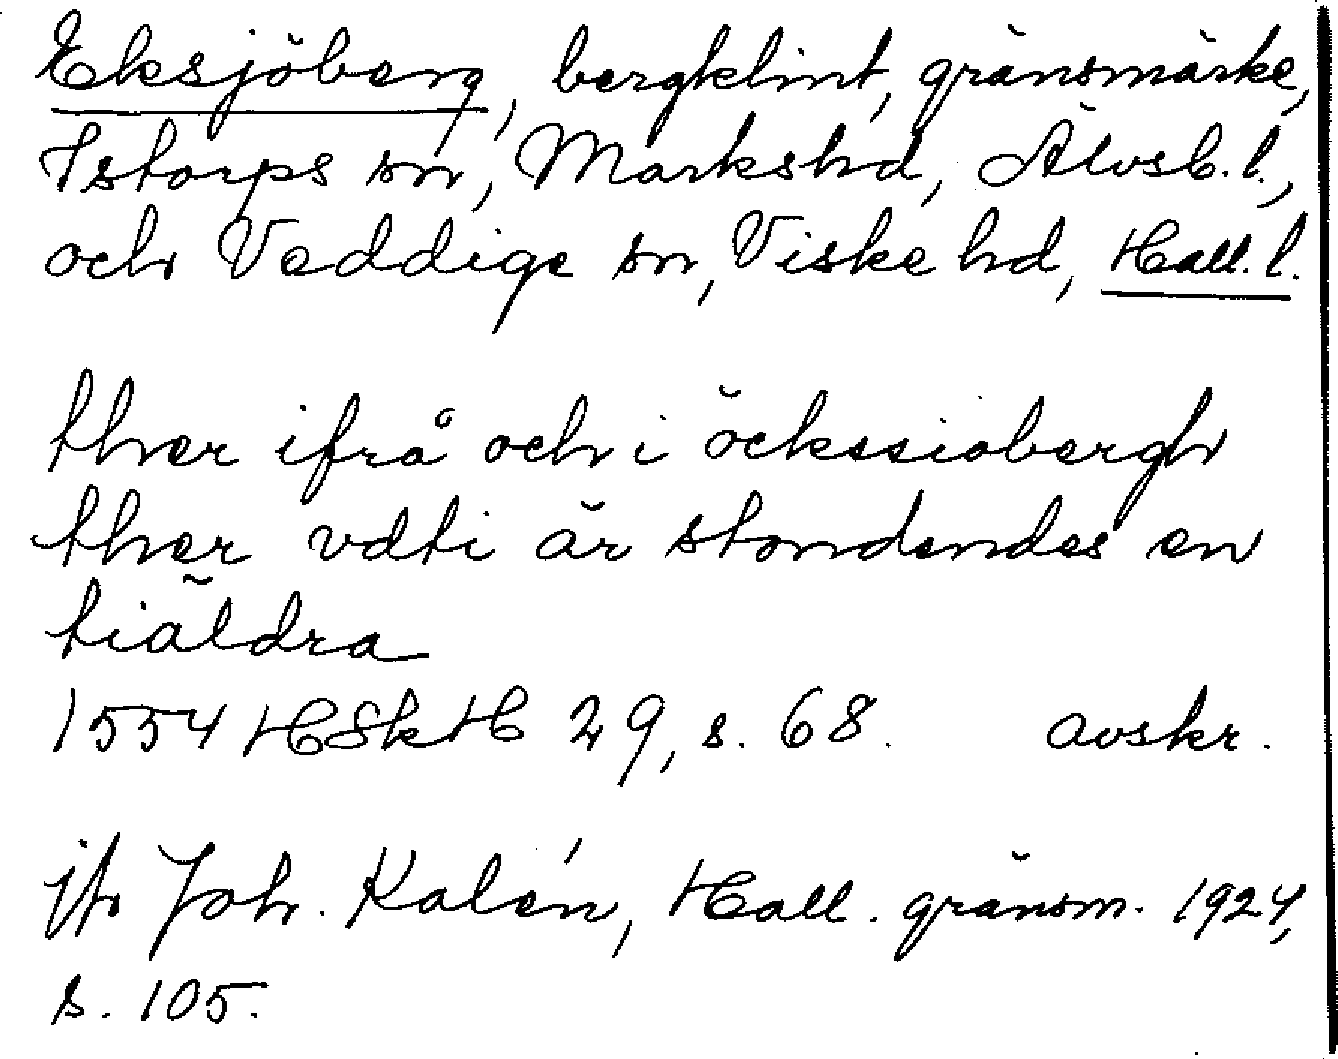 Eksjöberg, bergklint, gränsmärke,
Istorps sn, Markshd, Älvsb. l.,
och Veddige sn, Viske hd, Hall. l.
ther ifrå och i öckssiobergh
ther vdti är stondendes en
tiäldra
1554 HSkH 29, s. 68. avskr.
jfr Joh. Kalén, Hall. gränsm. 1924,
s. 105.